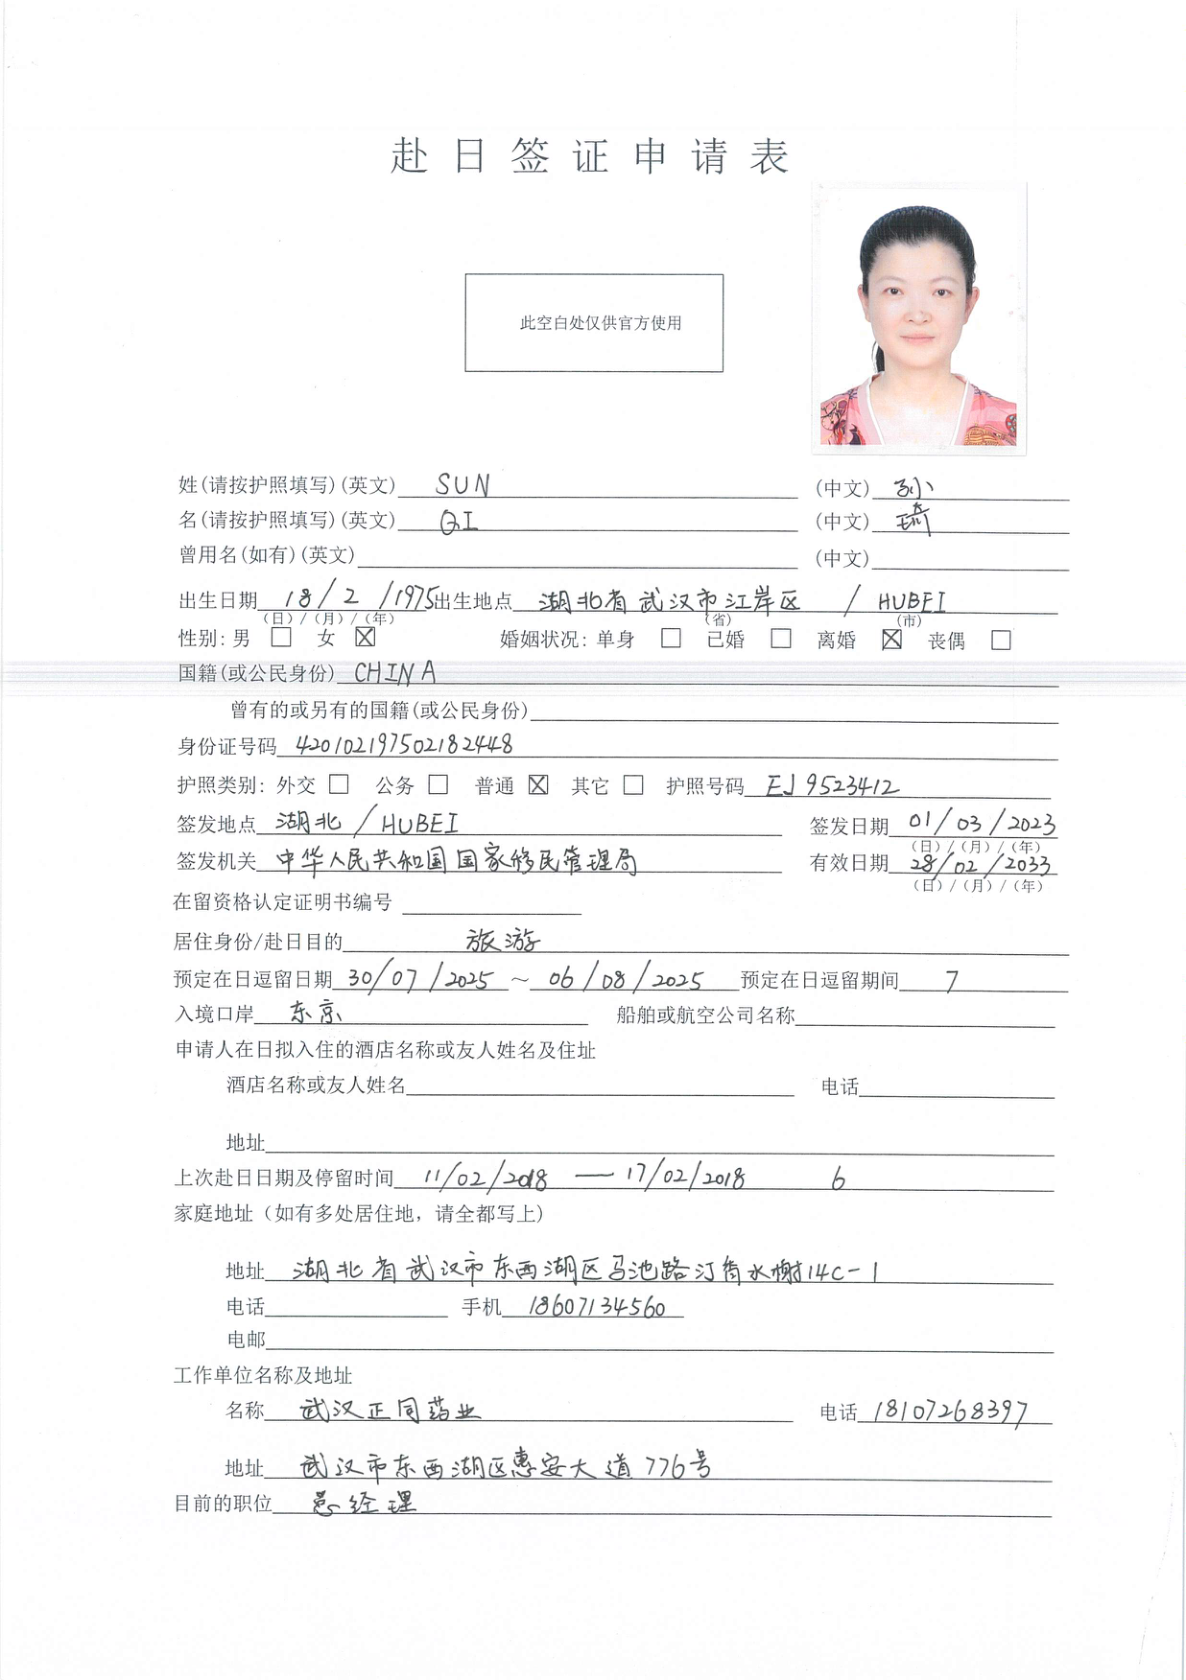 赴日签证申请表
此空白处仅供官方使用
姓(请按护照填写)(英文) SUN (中文) 孙
名(请按护照填写)(英文) QI (中文) 琦
曾用名(如有)(英文) (中文)
出生日期 18/2/1975 出生地点 湖北省武汉市江岸区 / HUBEI
(日)/(月)/(年) (省) (市)
性别: 男 □ 女 ☒ 婚姻状况: 单身 □ 已婚 □ 离婚 ☒ 丧偶 □
国籍(或公民身份) CHINA
曾有的或另有的国籍(或公民身份)
身份证号码 420102197502182448
护照类别: 外交 □ 公务 □ 普通 ☒ 其它 □ 护照号码 EJ9523412
签发地点 湖北/HUBEI 签发日期 01/03/2023
(日)/(月)/(年)
签发机关 中华人民共和国国家移民管理局 有效日期 28/02/2033
(日)/(月)/(年)
在留资格认定证明书编号
居住身份/赴日目的 旅游
预定在日逗留日期 30/07/2025 ~ 06/08/2025 预定在日逗留期间 7
入境口岸 东京 船舶或航空公司名称
申请人在日拟入住的酒店名称或友人姓名及住址
酒店名称或友人姓名 电话
地址
上次赴日日期及停留时间 11/02/2018 — 17/02/2018 6
家庭地址（如有多处居住地，请全都写上）
地址 湖北省武汉市东西湖区马池路汀香水榭14C-1
电话 手机 18607134560
电邮
工作单位名称及地址
名称 武汉正同药业 电话 18107268397
地址 武汉市东西湖区惠安大道776号
目前的职位 总经理